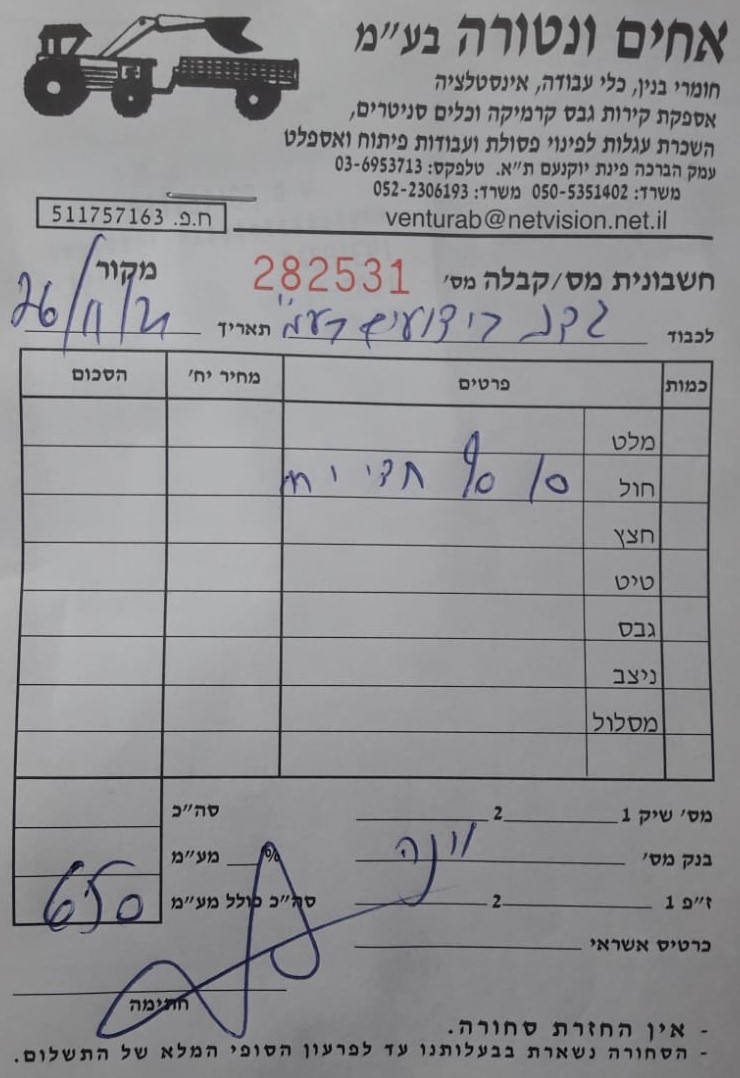 אחים ונטורה בע"מ
חומרי בנין, כלי עבודה, אינסטלציה
אספקת קירות גבס קרמיקה וכלים סניטרים,
השכרת עגלות לפינוי פסולת ועבודות פיתוח ואספלט
עמק הברכה פינת יוקנעם ת"א. טלפקס: 03-6953713
משרד: 050-5351402 משרד: 052-2306193
venturab@netvision.net.il
ח.פ. 511757163
חשבונית מס/קבלה מס' 282531 מקור
לכבוד בע"מ תאריך 26/11/21
כמות פרטים מחיר יח' הסכום
מלט
חול 10
חצץ
טיט
גבס
ניצב
מסלול
מס' שיק 1 2 סה"כ
בנק מס' % מע"מ
ז"פ 1 2 סה"כ כולל מע"מ 650
כרטיס אשראי
חתימה
- אין החזרת סחורה.
- הסחורה נשארת בבעלותנו עד לפרעון הסופי המלא של התשלום.